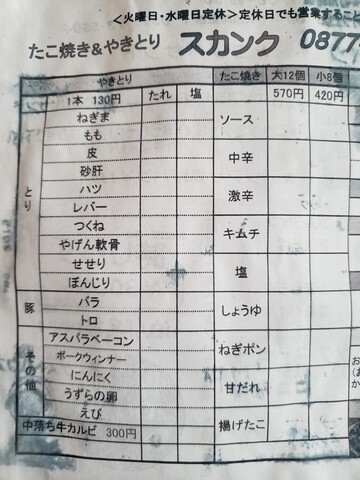 <火曜日・水曜日定休>定休日でも営業すること
たこ焼き&やきとり スカンク 0877
やきとり たこ焼き 大12個 小8個
1本 130円 たれ 塩 570円 420円
とり
ねぎま
もも
皮
砂肝
ハツ
レバー
つくね
やげん軟骨
せせり
ぼんじり
豚
バラ
トロ
その他
アスパラベーコン
ポークウィンナー
にんにく
うずらの卵
えび
中落ち牛カルビ 300円
ソース
中辛
激辛
キムチ
塩
しょうゆ
ねぎポン
甘だれ
揚げたこ